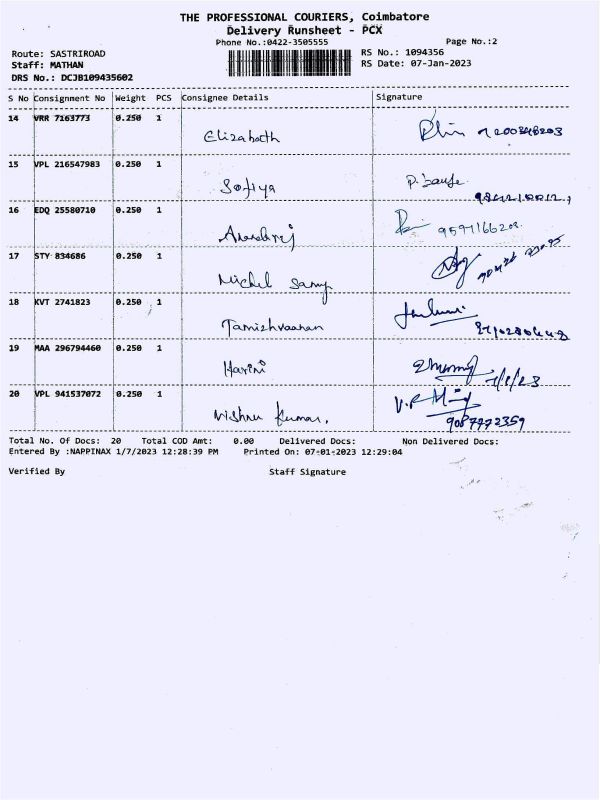 THE PROFESSIONAL COURIERS, Coimbatore
Delivery Runsheet - PCX
Phone No.:0422-3505555 Page No.:2
Route: SASTRIROAD RS No.: 1094356
Staff: MATHAN RS Date: 07-Jan-2023
DRS No.: DCJB109435602
S No Consignment No Weight PCS Consignee Details Signature
14 VRR 7163773 0.250 1
Elizabeth
15 VPL 216547983 0.250 1
Sofiya
16 EDQ 25580710 0.250 1
9597166202
17 STY 834686 0.250 1
Michel Samy
18 KVT 2741823 0.250 1
Tamizhvaanan
19 MAA 296794460 0.250 1
Harini
7/1/23
20 VPL 941537072 0.250 1
Vishnu Kumar.
9087772359
Total No. Of Docs: 20 Total COD Amt: 0.00 Delivered Docs: Non Delivered Docs:
Entered By :NAPPINAX 1/7/2023 12:28:39 PM Printed On: 07-01-2023 12:29:04
Verified By Staff Signature